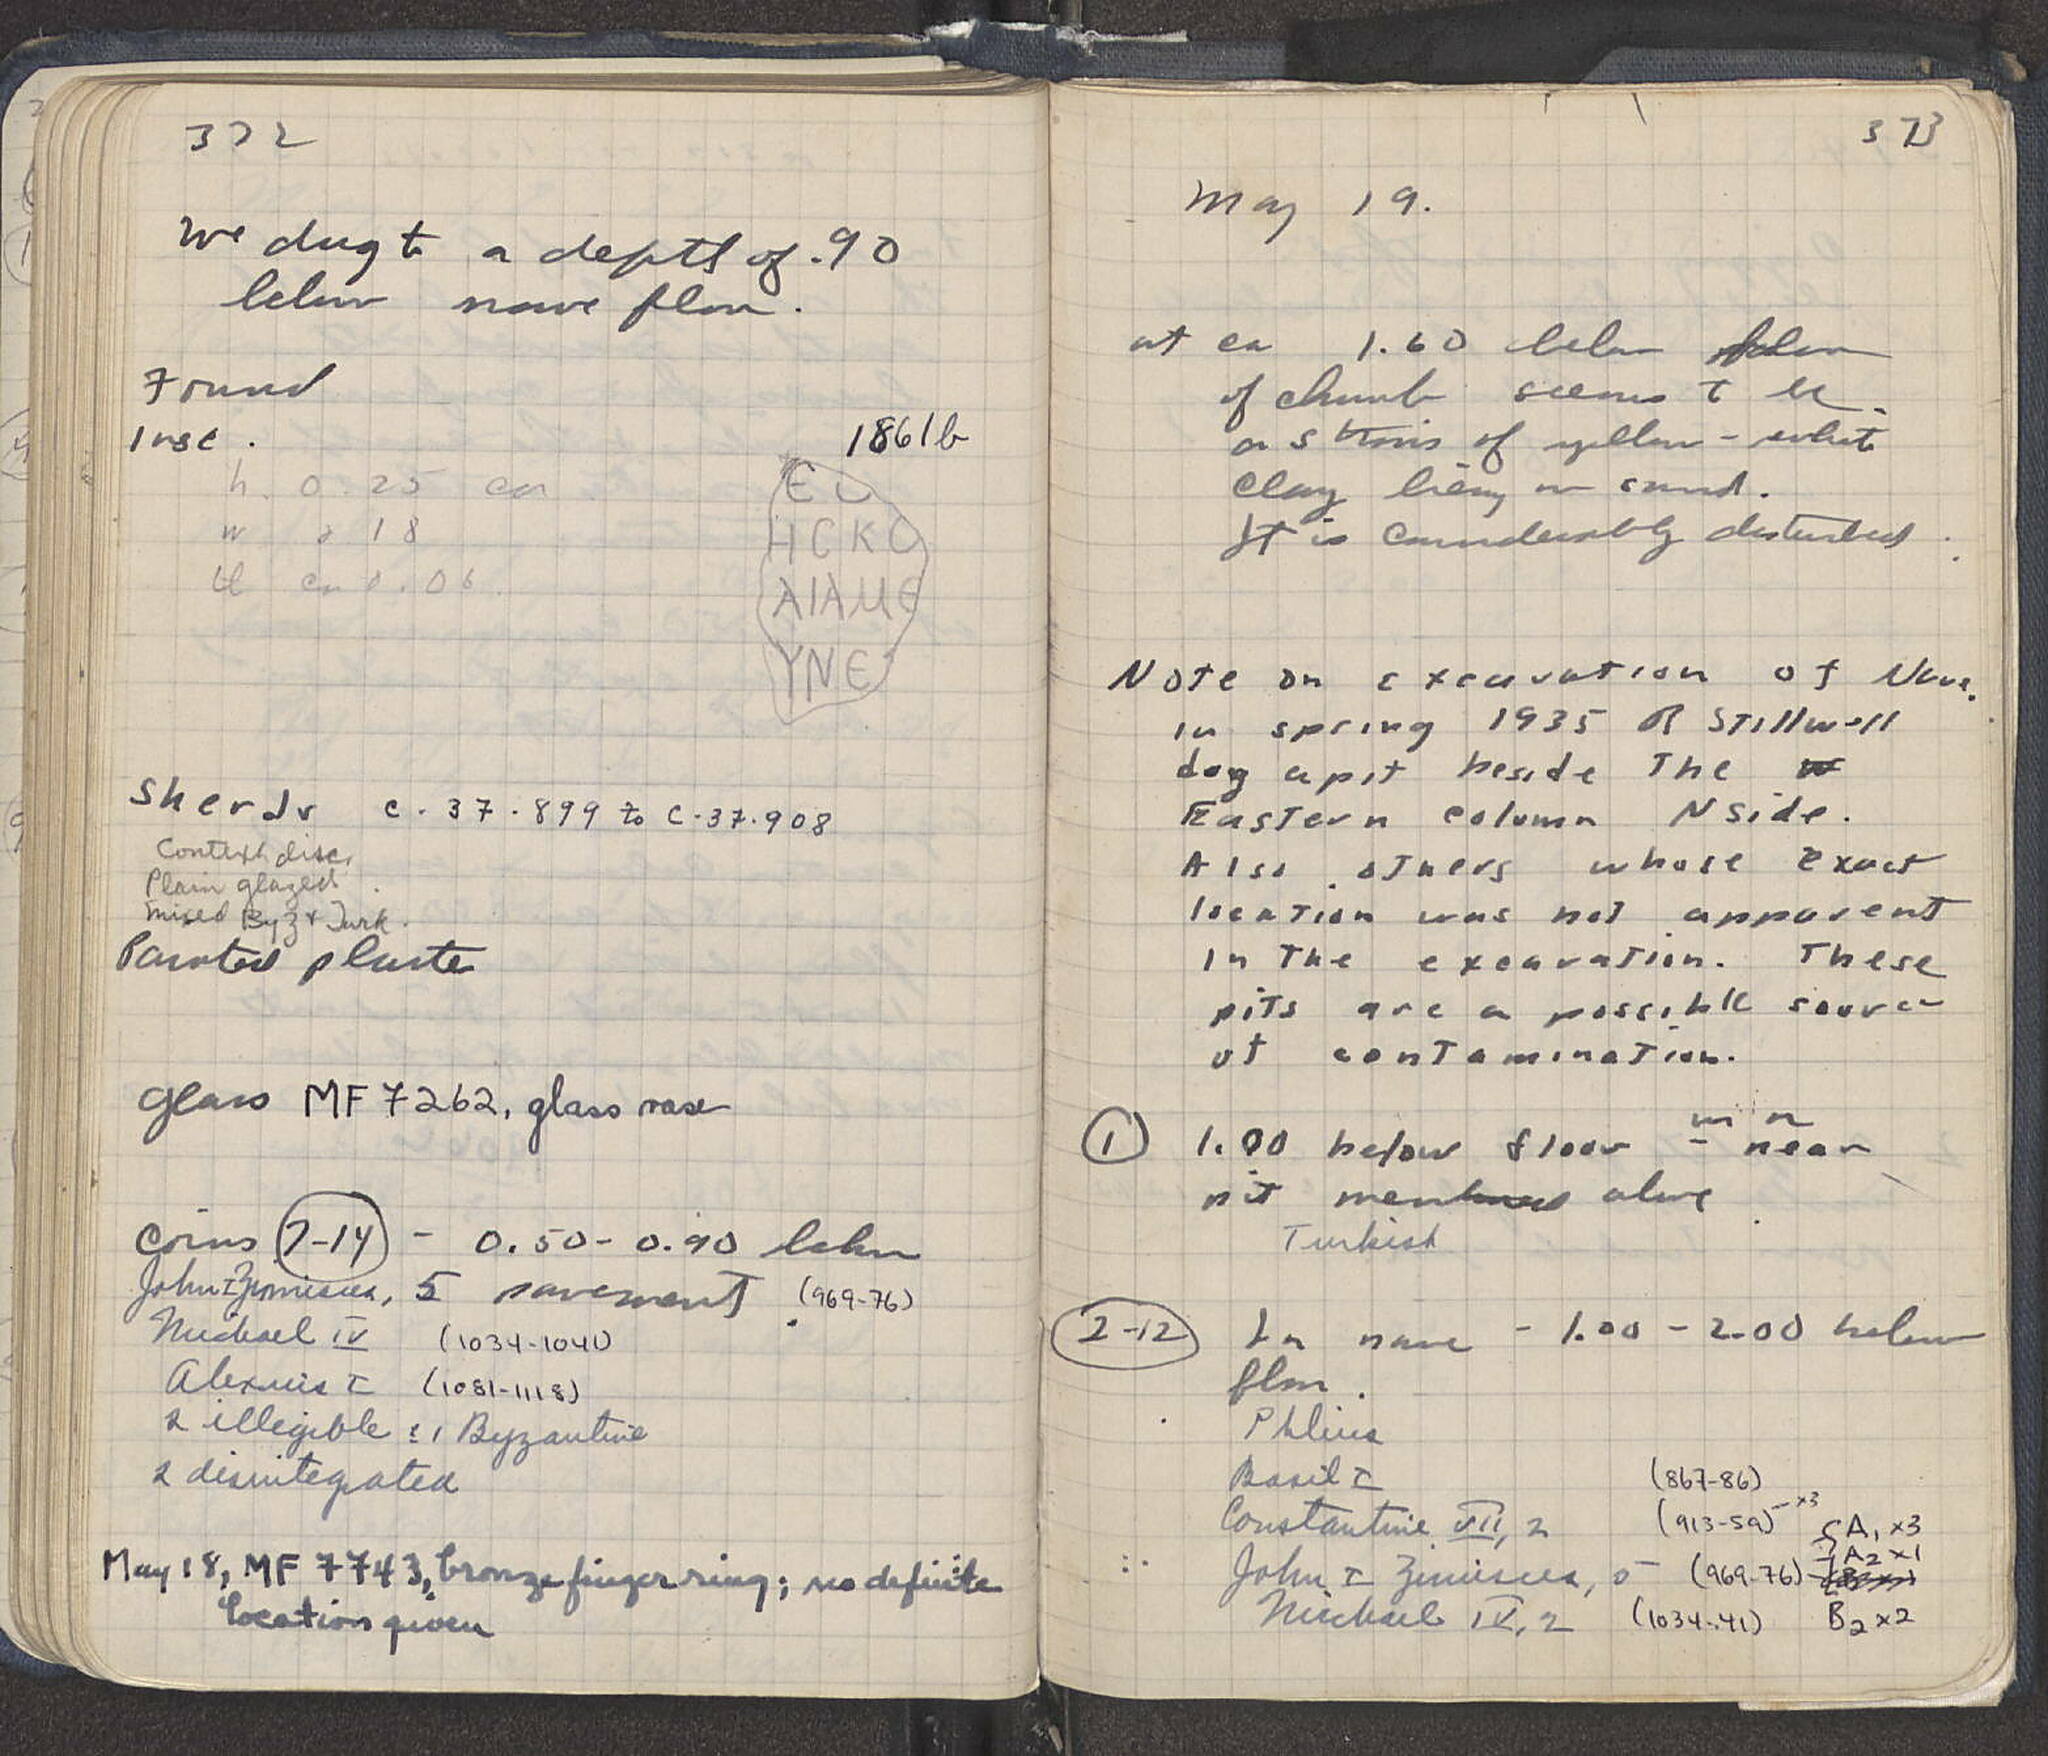 372
We dug to a depth of .90
below nave floor.
Found
Insc.
1861b
h. 0.25 ca
w 0.18
th ca 0.06
EU
HCKC
AIAME
YNE
Sherds C.37.899 to C.37.908
Context disc.
Plain glazed
mixed Byz & Turk.
Painted plaster
glass MF 7262, glass vase
Coins 7-14 - 0.50-0.90 below
John I Zimisces, 5 pavement. (969-76)
Michael IV (1034-1041)
Alexius I (1081-1118)
2 illegible : 1 Byzantine
2 disintegrated
May 18, MF 7743, bronze finger ring; no definite
location given
373
May 19.
at ca 1.60 below floor
of church seems to be
a stratum of yellow-white
clay lying on sand.
It is considerably disturbed.
Note on excavation of Nave.
in spring 1935 R Stillwell
dog a pit beside The
Eastern column N side.
Also others whose exact
location was not apparent
in The excavation. These
pits are a possible source
of contamination.
1 1.00 below floor in near
pit mentioned above
Turkish
2-12 In nave - 1.00-2.00 below
floor.
Phlius
Basil I (867-86)
Constantine VII, 2 (913-59) - x3
A1 x3
A2 x1
John I Zimisces, 5 (969-76)
Michael IV, 2 (1034-41) B2 x2